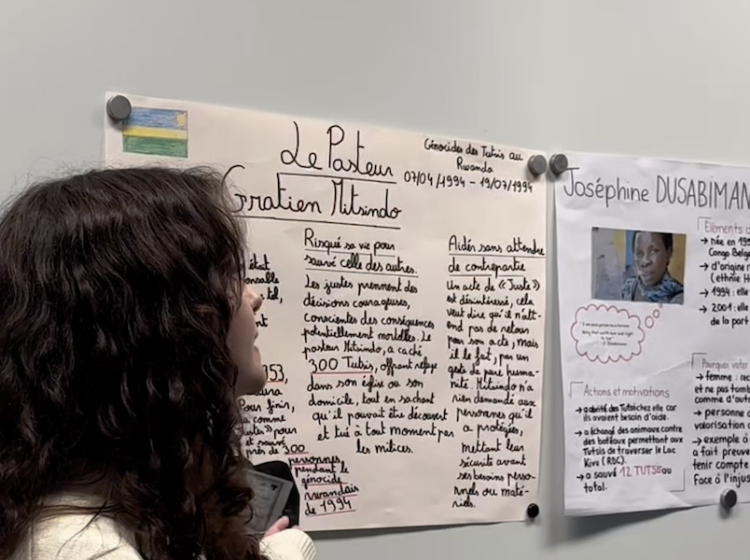 Le Pasteur
Gratien Mitsindo
Génocides des Tutsis au
Rwanda
07/04/1994 - 19/07/1994
était
tel,
953,
Pour finir,
comme
"Justes" pour
sauvé
près de 300
personnes,
pendant le
génocide
rwandais
de 1994
Risqué sa vie pour
sauvé celle des autres.
Les justes prennent des
décisions courageuses,
conscientes des conséquences
potentiellement mortelles. Le
pasteur Mitsindo, a caché
300 Tutsis, offrant refuge
dans son église ou son
domicile, tout en sachant
qu'il pouvait être découvert
et tué à tout moment par
les milices.
Aidés sans attendre
de contrepartie
Un acte de « Juste »
est désintéressé, cela
veut dire qu'il n'att-
end pas de retour
pour son acte, mais
il le fait, par un
geste de pure huma-
nité. Mitsindo n'a
rien demandé aux
personnes qu'il
a protégées,
mettant leur
sécurité avant
ses besoins perso-
nnels ou maté-
riels.
Joséphine DUSABIMAN
Eléments d
→ née en 19
Congo Belge
→ d'origine r
(ethnie H
→ 1994 : elle
→ 2001 : elle
de la part
Actions et motivations
→ a abrité des Tutsi chez elle car
ils avaient besoin d'aide.
→ a échangé des animaux contre
des bateaux permettant aux
Tutsis de traverser le Lac
Kivu (RDC).
→ a sauvé 12 TUTSI au
total.
Pourquoi voter
→ femme : rec
et ne pas tomb
comme d'autr
→ personne
valorisation
→ exemple à
a fait preuve
tenir compte
Face à l'injus